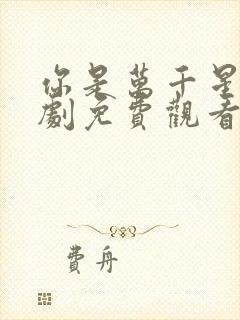 你是萬千星
劇免費觀看
費舟